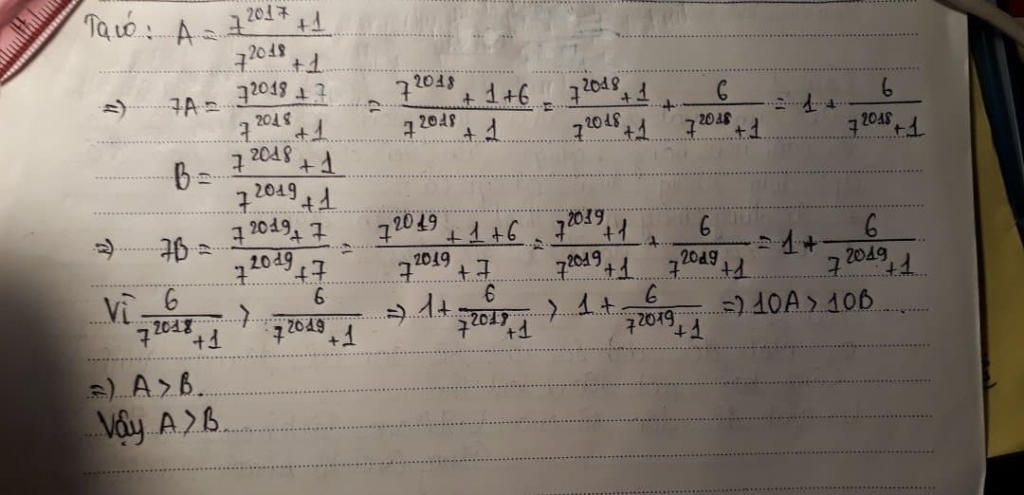 Ta có: A = \frac{7^{2017}+1}{7^{2018}+1}
=> 7A = \frac{7^{2018}+7}{7^{2018}+1} = \frac{7^{2018}+1+6}{7^{2018}+1} = \frac{7^{2018}+1}{7^{2018}+1} + \frac{6}{7^{2018}+1} = 1 + \frac{6}{7^{2018}+1}
B = \frac{7^{2018}+1}{7^{2019}+1}
=> 7B = \frac{7^{2019}+7}{7^{2019}+7} = \frac{7^{2019}+1+6}{7^{2019}+7} = \frac{7^{2019}+1}{7^{2019}+1} + \frac{6}{7^{2019}+1} = 1 + \frac{6}{7^{2019}+1}
Vì \frac{6}{7^{2018}+1} > \frac{6}{7^{2019}+1} => 1 + \frac{6}{7^{2018}+1} > 1 + \frac{6}{7^{2019}+1} => 10A > 10B
=> A > B.
Vậy A > B.